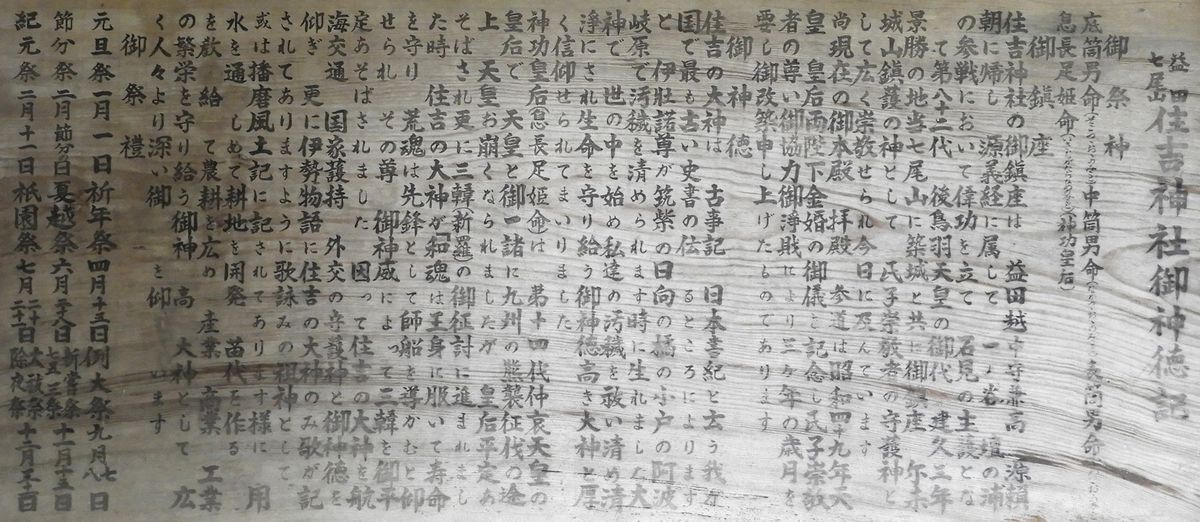 益田
七尾山
住吉神社御神徳記
御祭神
底筒男命 中筒男命 表筒男命
息長足姫命 (神功皇后)
御鎮座
住吉神社の御鎮座は 益田越中守兼高
朝に帰し 源義経に属して一ノ谷 壇の浦
の参戦において偉功を立て 石見の主護とな
って第八十二代 後鳥羽天皇の御代 建久三年
景勝の地当七尾山に築城と共に御鎮座 尓来
城山鎮護の神として 氏子崇敬者の守護神と
して広く崇敬せられ今日に及んでいます
尚現在の御本殿 拝殿 参道は昭和四十九年天
皇皇后両陛下金婚の御儀を記念し氏子崇敬
者の尊い御協力御浄財により三ヶ年の歳月を
要し御改築申し上げたものであります
御神徳
住吉の大神は 古事記 日本書紀と云う我が
国で最も古い史書の伝 るところによります
と 伊壮諾尊が筑紫の日向の橘の小戸の阿波
岐原で汚穢を清められます時に生れました大
神で 世の中を始め私達の汚穢を祓い清め清
浄にされ生命を守り給う御神徳高き大神と厚
く信仰せられてまいりました
神功皇后息長足姫命は 第十四代仲哀天皇の
皇后で 天皇と御一諸に九州の熊襲征伐の途
上 天皇お崩くなられましたが 皇后平定あ
そばされ更に三韓新羅の御征討に進まれまし
た時 住吉の大神が「和魂は王身に服いて寿命
を守り 荒魂は先鋒として師船を導かむと仰
せられ その尊 御神威によって三韓を御平
定あそばされました 因って住吉の大神を航
海交通 国家護持 外交の守護神と御神徳を
仰ぎ 更に伊勢物語に住吉の大神のみ歌が記
されてありますように歌詠みの祖神として
或は播磨風土記に記されてあります様に 用
水を通 しめて耕地を開発 苗代を作る
を教 給 て農耕を広め 産業 商業 工業
の繁栄を守り給う御神 高 大神として 広
く人々より深い御 を仰 います
御祭禮
元旦祭一月一日 祈年祭四月十五日 例大祭九月七八日
節分祭二月節分の日 夏越祭六月三十日 新嘗祭 七五三祭 十一月十五日
紀元祭二月十一日 祇園祭七月 日 大祓祭 除夜祭 十二月三十一日